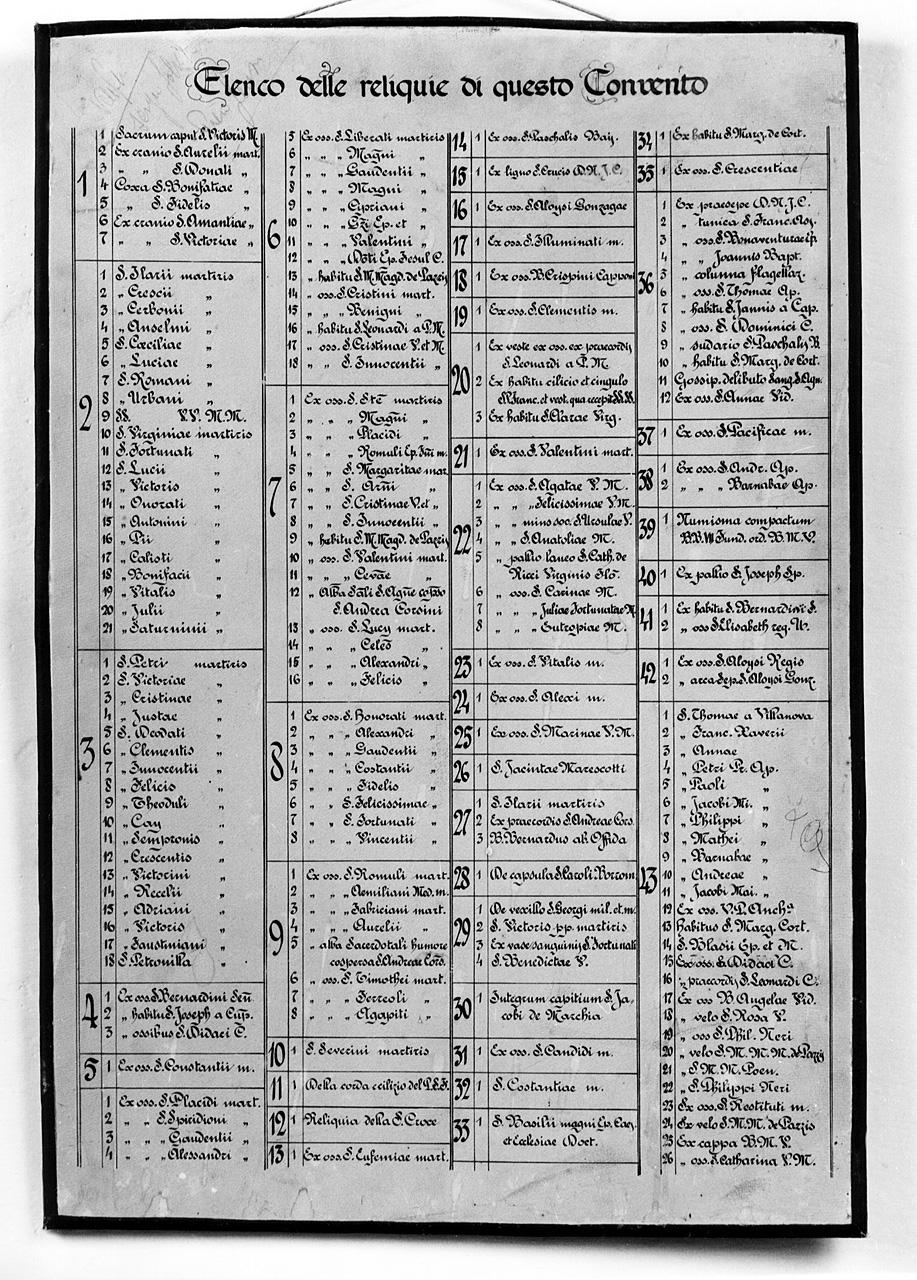 Elenco delle reliquie di questo Convento
1
1 Sacrum caput S. Victoris M.
2 Ex cranio S. Aurelii mart.
3 „ „ S. Donati „
4 Coxa S. Bonifatiae „
5 „ S. Fidelis „
6 Ex cranio S. Amantiae „
7 „ „ S. Victoriae „
2
1 S. Ilarii martiris
2 „ Crescii „
3 „ Cerbonii „
4 „ Anselmi „
5 S. Cæciliae „
6 „ Luciae „
7 S. Romani „
8 „ Urbani „
9 SS. V.V. M.M.
10 S. Virginiae martiris
11 S. Fortunati „
12 S. Lucii „
13 „ Victoris „
14 „ Onorati „
15 „ Antonini „
16 „ Pii „
17 „ Calisti „
18 „ Bonifacii „
19 „ Vitalis „
20 „ Julii „
21 „ Saturninii „
3
1 S. Petri martiris
2 S. Victoriae „
3 „ Cristinae „
4 „ Justae „
5 S. Deodati „
6 „ Clementis „
7 „ Innocentii „
8 „ Felicis „
9 „ Theoduli „
10 „ Cay „
11 „ Sempronis „
12 „ Crescentis „
13 „ Victorini „
14 „ Recelii „
15 „ Adriani „
16 „ Victoris „
17 „ Faustiniani „
18 S. Petronilla „
4
1 Ex oss. S. Bernardini Sen.
2 „ habitu S. Joseph a Cup.
3 „ ossibus S. Didaci C.
5
1 Ex oss. S. Constantii m.
1 Ex oss. S. Placidi mart.
2 „ „ S. Spiridioni „
3 „ „ „ Gaudentii „
4 „ „ „ Alessandri „
6
5 Ex oss. S. Liberati martiris
6 „ „ „ Magni „
7 „ „ „ Gaudentii „
8 „ „ „ Magni „
9 „ „ „ Cipriani „
10 „ „ „ Ep. et „
11 „ „ „ Valentini „
12 „ „ „ Ep. Fesul C.
13 „ habitu S. M. Magd. de Pazzis
14 „ oss. S. Cristini mart.
15 „ „ „ Benigni „
16 „ habitu S. Leonardi a P. M.
17 „ oss. S. Cristinae V. et M.
18 „ „ S. Innocentii „
7
1 Ex oss. S. martiris
2 „ „ „ Magni „
3 „ „ „ Placidi „
4 „ „ „ Romuli Ep. m.
5 „ „ S. Margaritae mar.
6 „ „ S. „
7 „ „ S. Cristinae V. et „
8 „ „ S. Innocentii „
9 „ habitu S. M. Magd. de Pazzis
10 „ oss. S. Valentini mart.
11 „ „ „ „
12 „ Alba S.
S. Andrea Corsini
13 „ oss. S. Lucy mart.
14 „ „ „ „
15 „ „ „ Alexandri „
16 „ „ „ Felicis „
8
1 Ex oss. S. Honorati mart.
2 „ „ „ Alexandri „
3 „ „ „ Gaudentii „
4 „ „ „ Costantii „
5 „ „ „ Fidelis „
6 „ „ S. Felicissimae „
7 „ „ S. Fortunati „
8 „ „ „ Vincentii „
9
1 Ex oss. S. Romuli mart.
2 „ „ „ Aemiliani Med. m.
3 „ „ „ Fabriciani mart.
4 „ „ „ Aurelii „
5 „ alba Sacerdotali humore
cospersa S. Andreae Cors.
6 „ oss. S. Timothei mart.
7 „ „ „ Ferreoli „
8 „ „ „ Agapiti „
10
1 S. Severini martiris
11
1 Della corda e cilizio del P. S. F.
12
1 Reliquia della S. Croce
13
1 Ex oss. S. Eufemiae mart.
14
1 Ex oss. S. Paschalis Bay.
15
1 Ex ligno S. Crucis D. N. J. C.
16
1 Ex oss. S. Aloysi Gonzagae
17
1 Ex oss. S. Illuminati m.
18
1 Ex oss. B. Crispini Cappon
19
1 Ex oss. S. Clementis m.
20
1 Ex veste ex oss. ex praecordijs
S. Leonardi a P. M
2 Ex habitu cilicio et cingulo
S. P. Franc. et vest. qua recepit SS. SS.
3 Ex habitu S. Clarae Virg.
21
1 Ex oss. S. Valentini mart.
22
1 Ex oss. S. Agatae V. M.
2 „ „ „ Felicissimae V. M.
3 „ „ mins soc. S. Ursulae V.
4 „ „ S. Anatoliae M.
5 „ pallio laneo S. Cath. de
Ricci Virginis Flō.
6 „ oss. S. Carinae M.
7 „ „ „ Juliae Fortunatae M.
8 „ „ „ Eutropiae M.
23
1 Ex oss. S. Vitalis m.
24
1 Ex oss. S. Alexi m.
25
1 Ex oss. S. Marinae V. M.
26
1 S. Jacintae Marescotti
27
1 S. Ilarii martiris
2 Ex praecordis S. Andreae Cors.
3 B. Bernardus ab Offida
28
1 De capsula S. Caroli Borrom.
29
1 De vexillo S. Georgi mil. et m.
2 S. Victoris pp. martiris
3 Ex vase sanguinis S. Fortunati
4 S. Benedictae V.
30
1 Integrum capitium S. Ja-
cobi de Marchia
31
1 Ex oss. S. Candidi m.
32
1 S. Costantiae m.
33
1 S. Basilii magni Ep. Caes.
et Ecclesiae Doct.
34
1 Ex habitu S. Marg. de Cort.
35
1 Ex oss. S. Crescentiae
36
1 Ex praesepe D. N. J. C.
2 „ tunica S. Franc. Asy.
3 „ oss. S. Bonaventurae Ep.
4 „ „ Joannis Bapt.
5 „ columna flagellaz.
6 „ oss. S. Thomae Ap.
7 „ habitu S. Jannis a Cap.
8 „ oss. S. Dominici C.
9 „ sudario S. Paschalis B
10 „ habitu S. Marg. de Cort.
11 Gossip. delibuto Sang. S. Ayn.
12 Ex oss. S. Annae Vid.
37
1 Ex oss. S. Pacificae m.
38
1 Ex oss. S. Andr. Ap.
2 „ „ „ Barnabae Ap.
39
1 Numisma compactum
B.B. VII Fund. ord. B. M. V.
40
1 Ex pallio S. Joseph Sp.
41
1 Ex habitu S. Bernardini S.
2 „ oss. S. Elisabeth reg. U.
42
1 Ex oss. S. Aloysi Regis
2 „ arca Sep. S. Aloysi Gonz.
43
1 S. Thomae a Villanova
2 „ Franc. Xaverii
3 „ Annae
4 „ Petri Pr. Ap.
5 „ Paoli „
6 „ Jacobi Mi. „
7 „ Philippi „
8 „ Mathei „
9 „ Barnabae „
10 „ Andreae „
11 „ Jacobi Mai. „
12 Ex oss. V. P. Anch.ª
13 Habitus S. Marg. Cort.
14 S. Blasii Ep. et M.
15 Ex oss. S. Didaci C.
16 „ praecordis S. Leonardi C.
17 Ex oss B. Angelae Vid.
18 „ velo S. Rosa V.
19 „ oss S. Phil. Neri
20 „ velo S. M. M. M. de Pazzis
21 „ S. M. M. Poen.
22 „ S. Philippi Neri
23 Ex oss. S. Restituti m.
24 Ex velo S. M. M. de Pazzis
25 Ex cappa B. M. V.
26 „ oss. S. Catharina V. M.